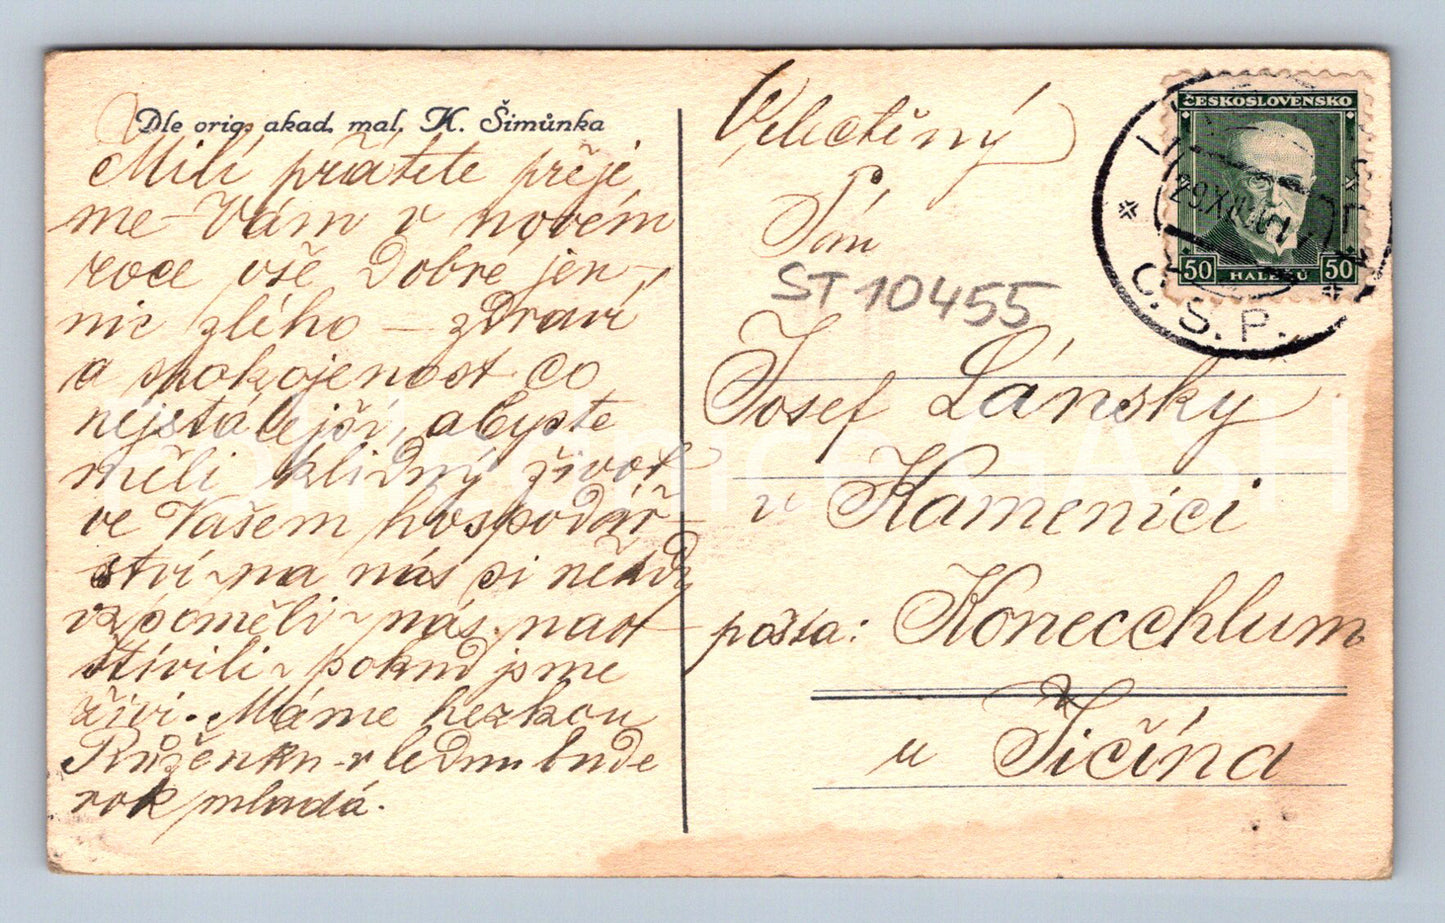 Dle orig. akad. mal. K. Šimůnka
Milí přátele přeje
me-Vám v novém
roce vše Dobré jen-
nic zlého - zdraví
a spokojenost co
nejstálejší, abyste
měli klidný život
ve Vašem hospodář-
ství - na nás si někdy
vzpoměli - nás. nav
štívili - pokud jsme
živi. Máme hezkou
Růženku - v lednu bude
rok mladá.
Velectěný
Pán
ST 10455
Josef Lánsky
v Kamenici
pošta: Konecchlum
u Jičína
ČESKOSLOVENSKO
50 HALÉŘŮ 50
29.XII
Č.S.P.